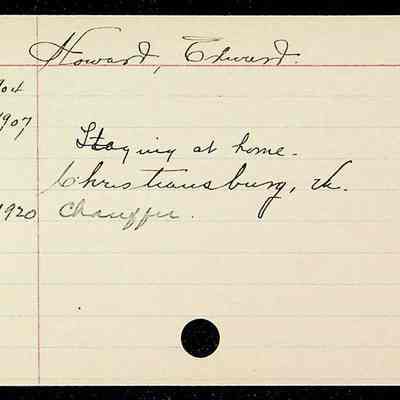 Howard, Edward.
904
1907
Staying at home.
Christiansburg, Va.
1920 Chauffer.